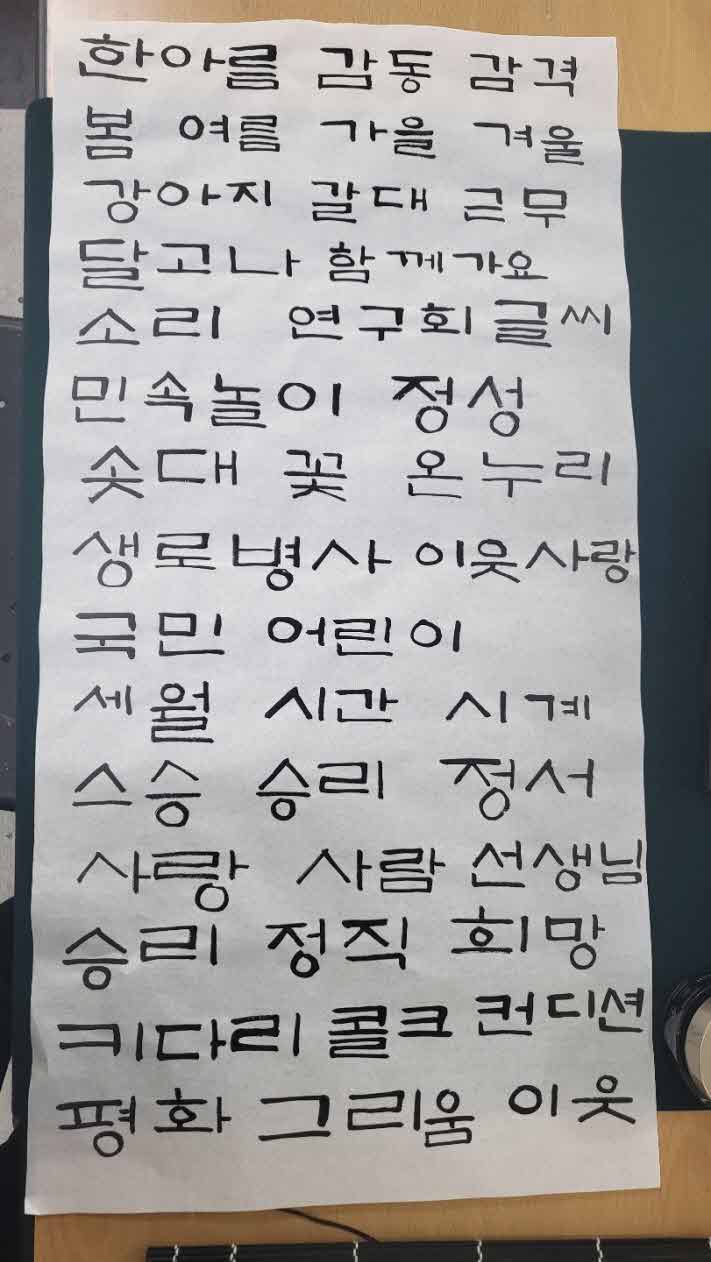 한아름 감동 감격
봄 여름 가을 겨울
강아지 갈대 근무
달고나 함께가요
소리 연구회 글씨
민속놀이 정성
솟대 꽃 온누리
생로병사 이웃사랑
국민 어린이
세월 시간 시계
스승 승리 정서
사랑 사람 선생님
승리 정직 희망
키다리 콜크 컨디션
평화 그리움 이웃